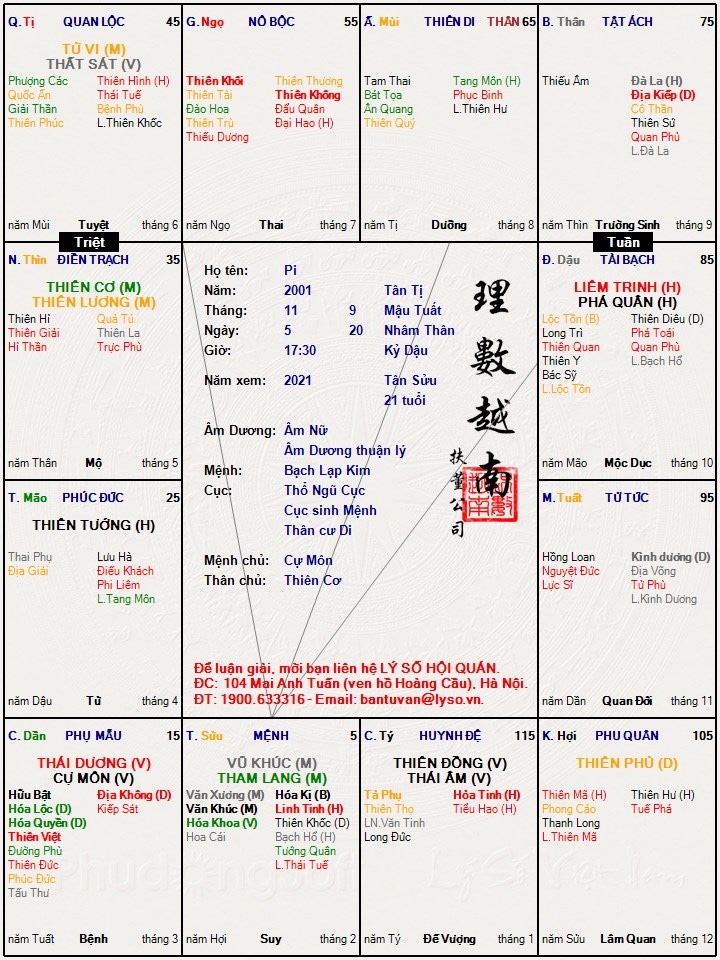 Q. Tị QUAN LỘC 45
TỬ VI (M)
THẤT SÁT (V)
Phượng Các Thiên Hình (H)
Quốc Ấn Thái Tuế
Giải Thần Bệnh Phù
Thiên Phúc L.Thiên Khốc
năm Mùi Tuyệt tháng 6
G. Ngọ NÔ BỘC 55
Thiên Khôi Thiên Thương
Thiên Tài Thiên Không
Đào Hoa Đẩu Quân
Thiên Trù Đại Hao (H)
Thiếu Dương
năm Ngọ Thai tháng 7
Ấ. Mùi THIÊN DI THÂN 65
Tam Thai Tang Môn (H)
Bát Tọa Phục Binh
Ân Quang L.Thiên Hư
Thiên Quý
năm Tị Dưỡng tháng 8
B. Thân TẬT ÁCH 75
Thiếu Âm Đà La (H)
Địa Kiếp (D)
Cô Thần
Thiên Sứ
Quan Phủ
L.Đà La
năm Thìn Trường Sinh tháng 9
Triệt
Tuần
N. Thìn ĐIỀN TRẠCH 35
THIÊN CƠ (M)
THIÊN LƯƠNG (M)
Thiên Hỉ Quả Tú
Thiên Giải Thiên La
Hỉ Thần Trực Phù
năm Thân Mộ tháng 5
Họ tên: Pi
Năm: 2001 Tân Tị
Tháng: 11 9 Mậu Tuất
Ngày: 5 20 Nhâm Thân
Giờ: 17:30 Kỷ Dậu
Năm xem: 2021 Tân Sửu
21 tuổi
Âm Dương: Âm Nữ
Âm Dương thuận lý
Mệnh: Bạch Lạp Kim
Cục: Thổ Ngũ Cục
Cục sinh Mệnh
Thân cư Di
Mệnh chủ: Cự Môn
Thân chủ: Thiên Cơ
理數越南
扶董公司
Để luận giải, mời bạn liên hệ LÝ SỐ HỘI QUÁN.
ĐC: 104 Mai Anh Tuấn (ven hồ Hoàng Cầu), Hà Nội.
ĐT: 1900.633316 - Email: bantuvan@lyso.vn.
Đ. Dậu TÀI BẠCH 85
LIÊM TRINH (H)
PHÁ QUÂN (H)
Lộc Tồn (B) Thiên Diêu (D)
Long Trì Phá Toái
Thiên Quan Quan Phù
Thiên Y L.Bạch Hổ
Bác Sỹ
L.Lộc Tồn
năm Mão Mộc Dục tháng 10
T. Mão PHÚC ĐỨC 25
THIÊN TƯỚNG (H)
Thai Phụ Lưu Hà
Địa Giải Điếu Khách
Phi Liêm
L.Tang Môn
năm Dậu Tử tháng 4
M. Tuất TỬ TỨC 95
Hồng Loan Kình dương (D)
Nguyệt Đức Địa Võng
Lực Sĩ Tử Phù
L.Kình Dương
năm Dần Quan Đới tháng 11
C. Dần PHỤ MẪU 15
THÁI DƯƠNG (V)
CỰ MÔN (V)
Hữu Bật Địa Không (D)
Hóa Lộc (D) Kiếp Sát
Hóa Quyền (D)
Thiên Việt
Đường Phù
Thiên Đức
Phúc Đức
Tấu Thư
năm Tuất Bệnh tháng 3
T. Sửu MỆNH 5
VŨ KHÚC (M)
THAM LANG (M)
Văn Xương (M) Hóa Kị (B)
Văn Khúc (M) Linh Tinh (H)
Hóa Khoa (V) Thiên Khốc (D)
Hoa Cái Bạch Hổ (H)
Tướng Quân
L.Thái Tuế
năm Hợi Suy tháng 2
C. Tý HUYNH ĐỆ 115
THIÊN ĐỒNG (V)
THÁI ÂM (V)
Tả Phụ Hỏa Tinh (H)
Thiên Thọ Tiểu Hao (H)
LN.Văn Tinh
Long Đức
năm Tý Đế Vượng tháng 1
K. Hợi PHU QUÂN 105
THIÊN PHỦ (D)
Thiên Mã (H) Thiên Hư (H)
Phong Cáo Tuế Phá
Thanh Long
L.Thiên Mã
năm Sửu Lâm Quan tháng 12